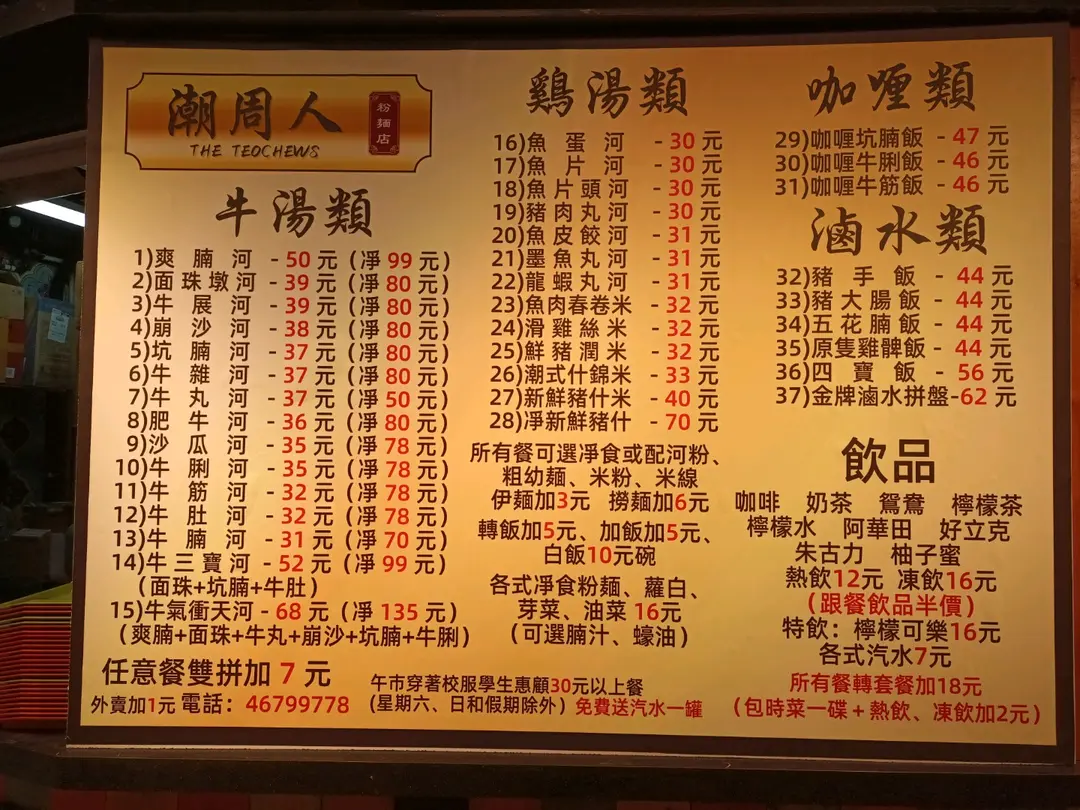 潮周人
粉麵店
THE TEOCHEWS
牛湯類
1)爽腩河 - 50 元 (凈 99 元)
2)面珠墩河 - 39 元 (凈 80 元)
3)牛展河 - 39 元 (凈 80 元)
4)崩沙河 - 38 元 (凈 80 元)
5)坑腩河 - 37 元 (凈 80 元)
6)牛雜河 - 37 元 (凈 80 元)
7)牛丸河 - 37 元 (凈 50 元)
8)肥牛河 - 36 元 (凈 80 元)
9)沙瓜河 - 35 元 (凈 78 元)
10)牛脷河 - 35 元 (凈 78 元)
11)牛筋河 - 32 元 (凈 78 元)
12)牛肚河 - 32 元 (凈 78 元)
13)牛腩河 - 31 元 (凈 70 元)
14)牛三寶河 - 52 元 (凈 99 元)
(面珠+坑腩+牛肚)
15)牛氣衝天河 - 68 元 (凈 135 元)
(爽腩+面珠+牛丸+崩沙+坑腩+牛脷)
任意餐雙拼加 7 元
外賣加1元 電話：46799778
鷄湯類
16)魚蛋河 - 30 元
17)魚片河 - 30 元
18)魚片頭河 - 30 元
19)豬肉丸河 - 30 元
20)魚皮餃河 - 31 元
21)墨魚丸河 - 31 元
22)龍蝦丸河 - 31 元
23)魚肉春卷米 - 32 元
24)滑雞絲米 - 32 元
25)鮮豬潤米 - 32 元
26)潮式什錦米 - 33 元
27)新鮮豬什米 - 40 元
28)凈新鮮豬什 - 70 元
所有餐可選凈食或配河粉、
粗幼麵、米粉、米線
伊麵加3元 撈麵加6元
轉飯加5元、加飯加5元、
白飯10元碗
各式凈食粉麵、蘿白、
芽菜、油菜 16元
(可選腩汁、蠔油)
午市穿著校服學生惠顧30元以上餐
(星期六、日和假期除外) 免費送汽水一罐
咖喱類
29)咖喱坑腩飯 - 47 元
30)咖喱牛脷飯 - 46 元
31)咖喱牛筋飯 - 46 元
滷水類
32)豬手飯 - 44 元
33)豬大腸飯 - 44 元
34)五花腩飯 - 44 元
35)原隻雞髀飯 - 44 元
36)四寶飯 - 56 元
37)金牌滷水拼盤-62 元
飲品
咖啡 奶茶 鴛鴦 檸檬茶
檸檬水 阿華田 好立克
朱古力 柚子蜜
熱飲12元 凍飲16元
(跟餐飲品半價)
特飲：檸檬可樂16元
各式汽水7元
所有餐轉套餐加18元
(包時菜一碟+熱飲、凍飲加2元)